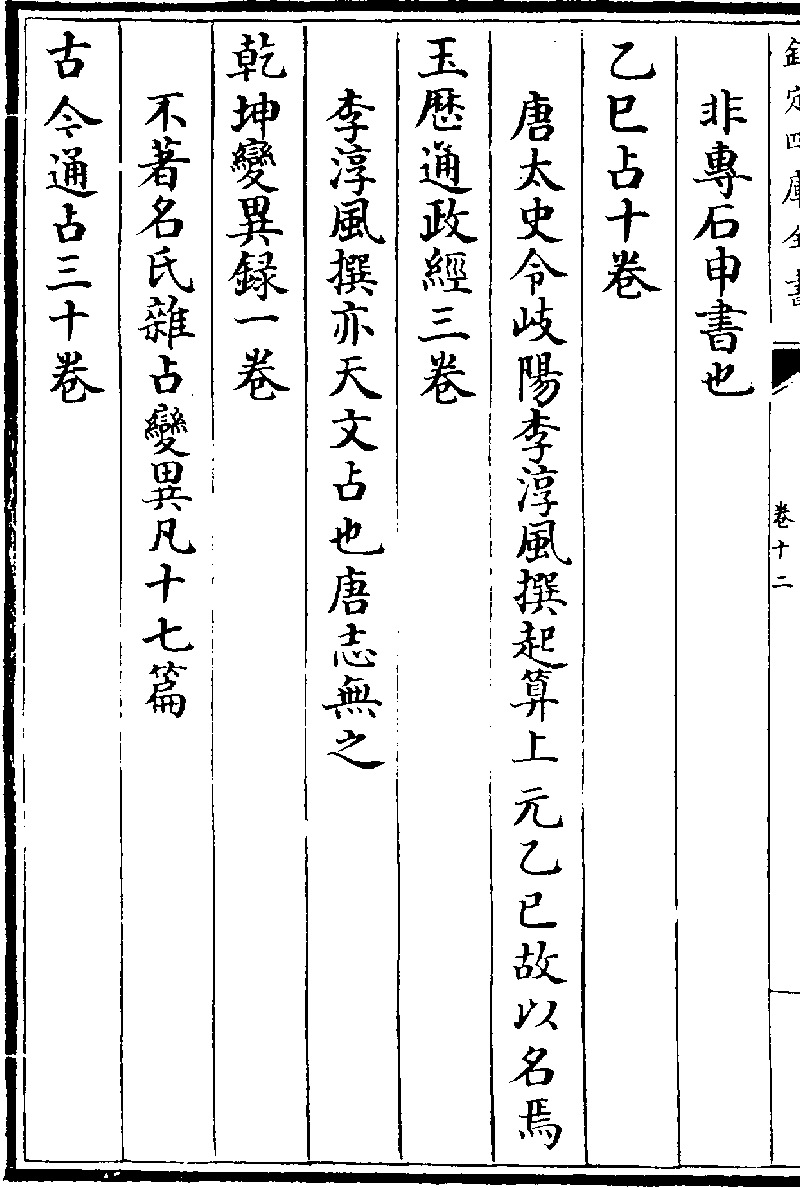 欽定四庫全書
卷十二
非專石申書也
乙巳占十卷
唐太史令岐陽李淳風撰起算上元乙巳故以名焉
玉歴通政經三卷
李淳風撰亦天文占也唐志無之
乾坤變異録一卷
不著名氏雜占變異凡十七篇
古今通占三十卷